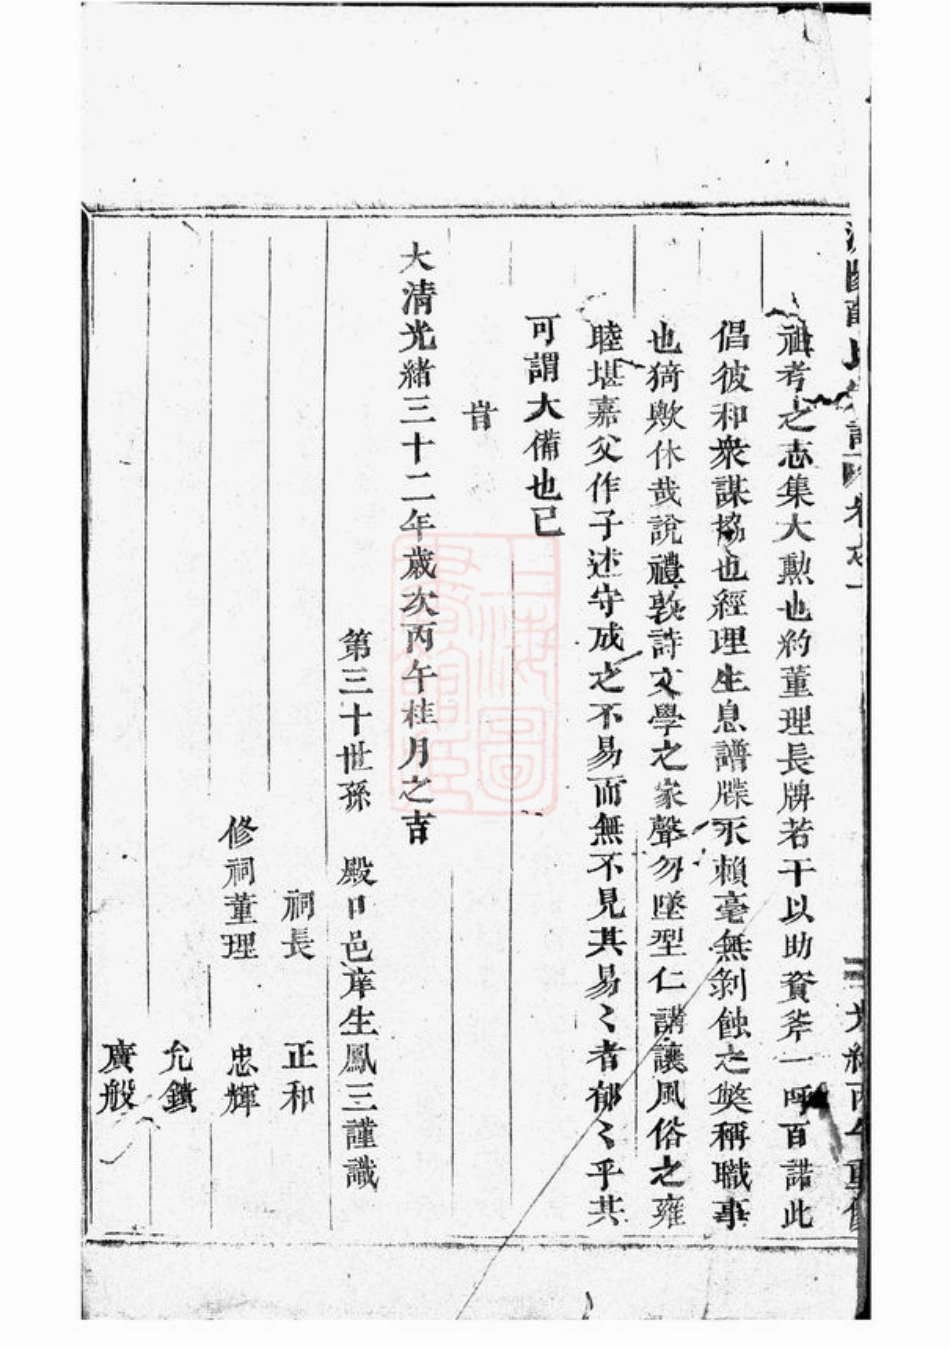 祖考之志集大勲也約董理長牌若干以助資斧一呼百諾此
倡彼和衆謀協也經理生息譜牒永賴毫無剝蝕之獘稱職事
也猗歟休哉說禮敦詩文學之家聲勿墜型仁講讓風俗之雍
睦堪嘉父作子述守成之不易而無不見其易〻者郁〻乎其
可謂大備也已
旹
大清光緒三十二年歲次丙午桂月之吉
第三十世孫 殿口邑庠生鳳三謹識
祠長 正和
修祠董理 忠輝
允鑌
廣般
上海圖書館藏
氏 卷之一 光緒丙午重修